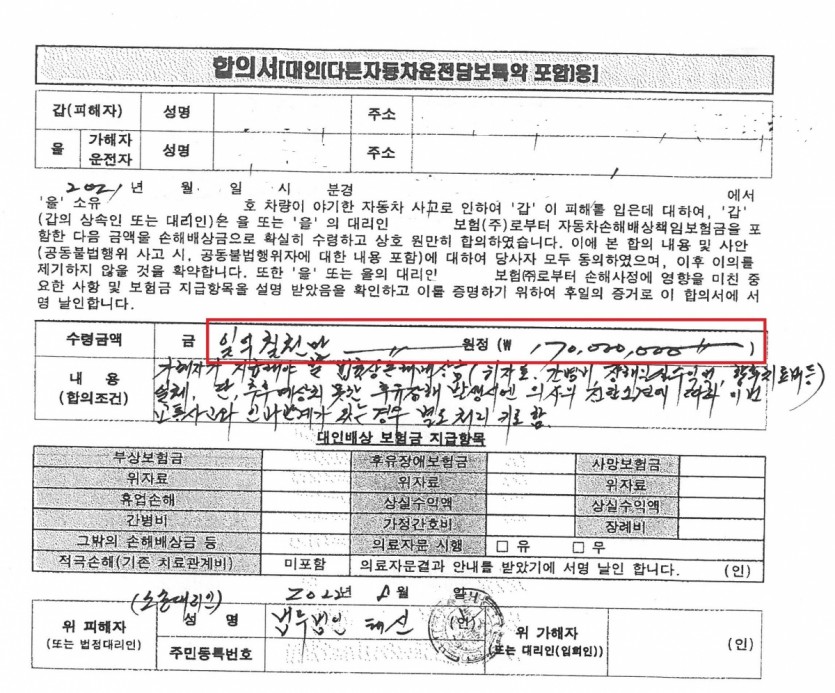 합의서[대인(다른자동차운전담보특약 포함)용]
갑(피해자) 성명 주소
을 가해자 운전자 성명 주소
2021년 월 일 시 분경 에서
'을' 소유 호 차량이 야기한 자동차 사고로 인하여 '갑' 이 피해를 입은데 대하여, '갑'
(갑의 상속인 또는 대리인)은 을 또는 '을' 의 대리인 보험(주)로부터 자동차손해배상책임보험금을 포
함한 다음 금액을 손해배상금으로 확실히 수령하고 상호 원만히 합의하였습니다. 이에 본 합의 내용 및 사안
(공동불법행위 사고 시, 공동불법행위자에 대한 내용 포함)에 대하여 당사자 모두 동의하였으며, 이후 이의를
제기하지 않을 것을 확약합니다. 또한 '을' 또는 을의 대리인 보험㈜로부터 손해사정에 영향을 미친 중
요한 사항 및 보험금 지급항목을 설명 받았음을 확인하고 이를 증명하기 위하여 후일의 증거로 이 합의서에 서
명 날인합니다.
수령금액 금 일억칠천만 〃 원정 (₩ 170,000,000 〃 )
내 용 (합의조건) 가해자가 지급해야 할 법률상손해배상금 (위자료, 간병비, 장해상실수익액, 향후치료비등)
일체, 단, 추후 예상치 못한 후유장해 발생시엔 의사의 진단소견에 따라 이번
교통사고와 인과관계가 있는 경우 별도 처리 키로 함.
대인배상 보험금 지급항목
부상보험금 후유장애보험금 사망보험금
위자료 위자료 위자료
휴업손해 상실수익액 상실수익액
간병비 가정간호비 장례비
그밖의 손해배상금 등 의료자문 시행 □ 유 □ 무
적극손해(기존 치료관계비) 미포함 의료자문결과 안내를 받았기에 서명 날인 합니다. (인)
(소송대리인) 2022년 월 일
위 피해자 (또는 법정대리인) 성 명 법무법인 (인) 위 가해자 (또는 대리인(임회인)) (인)
주민등록번호